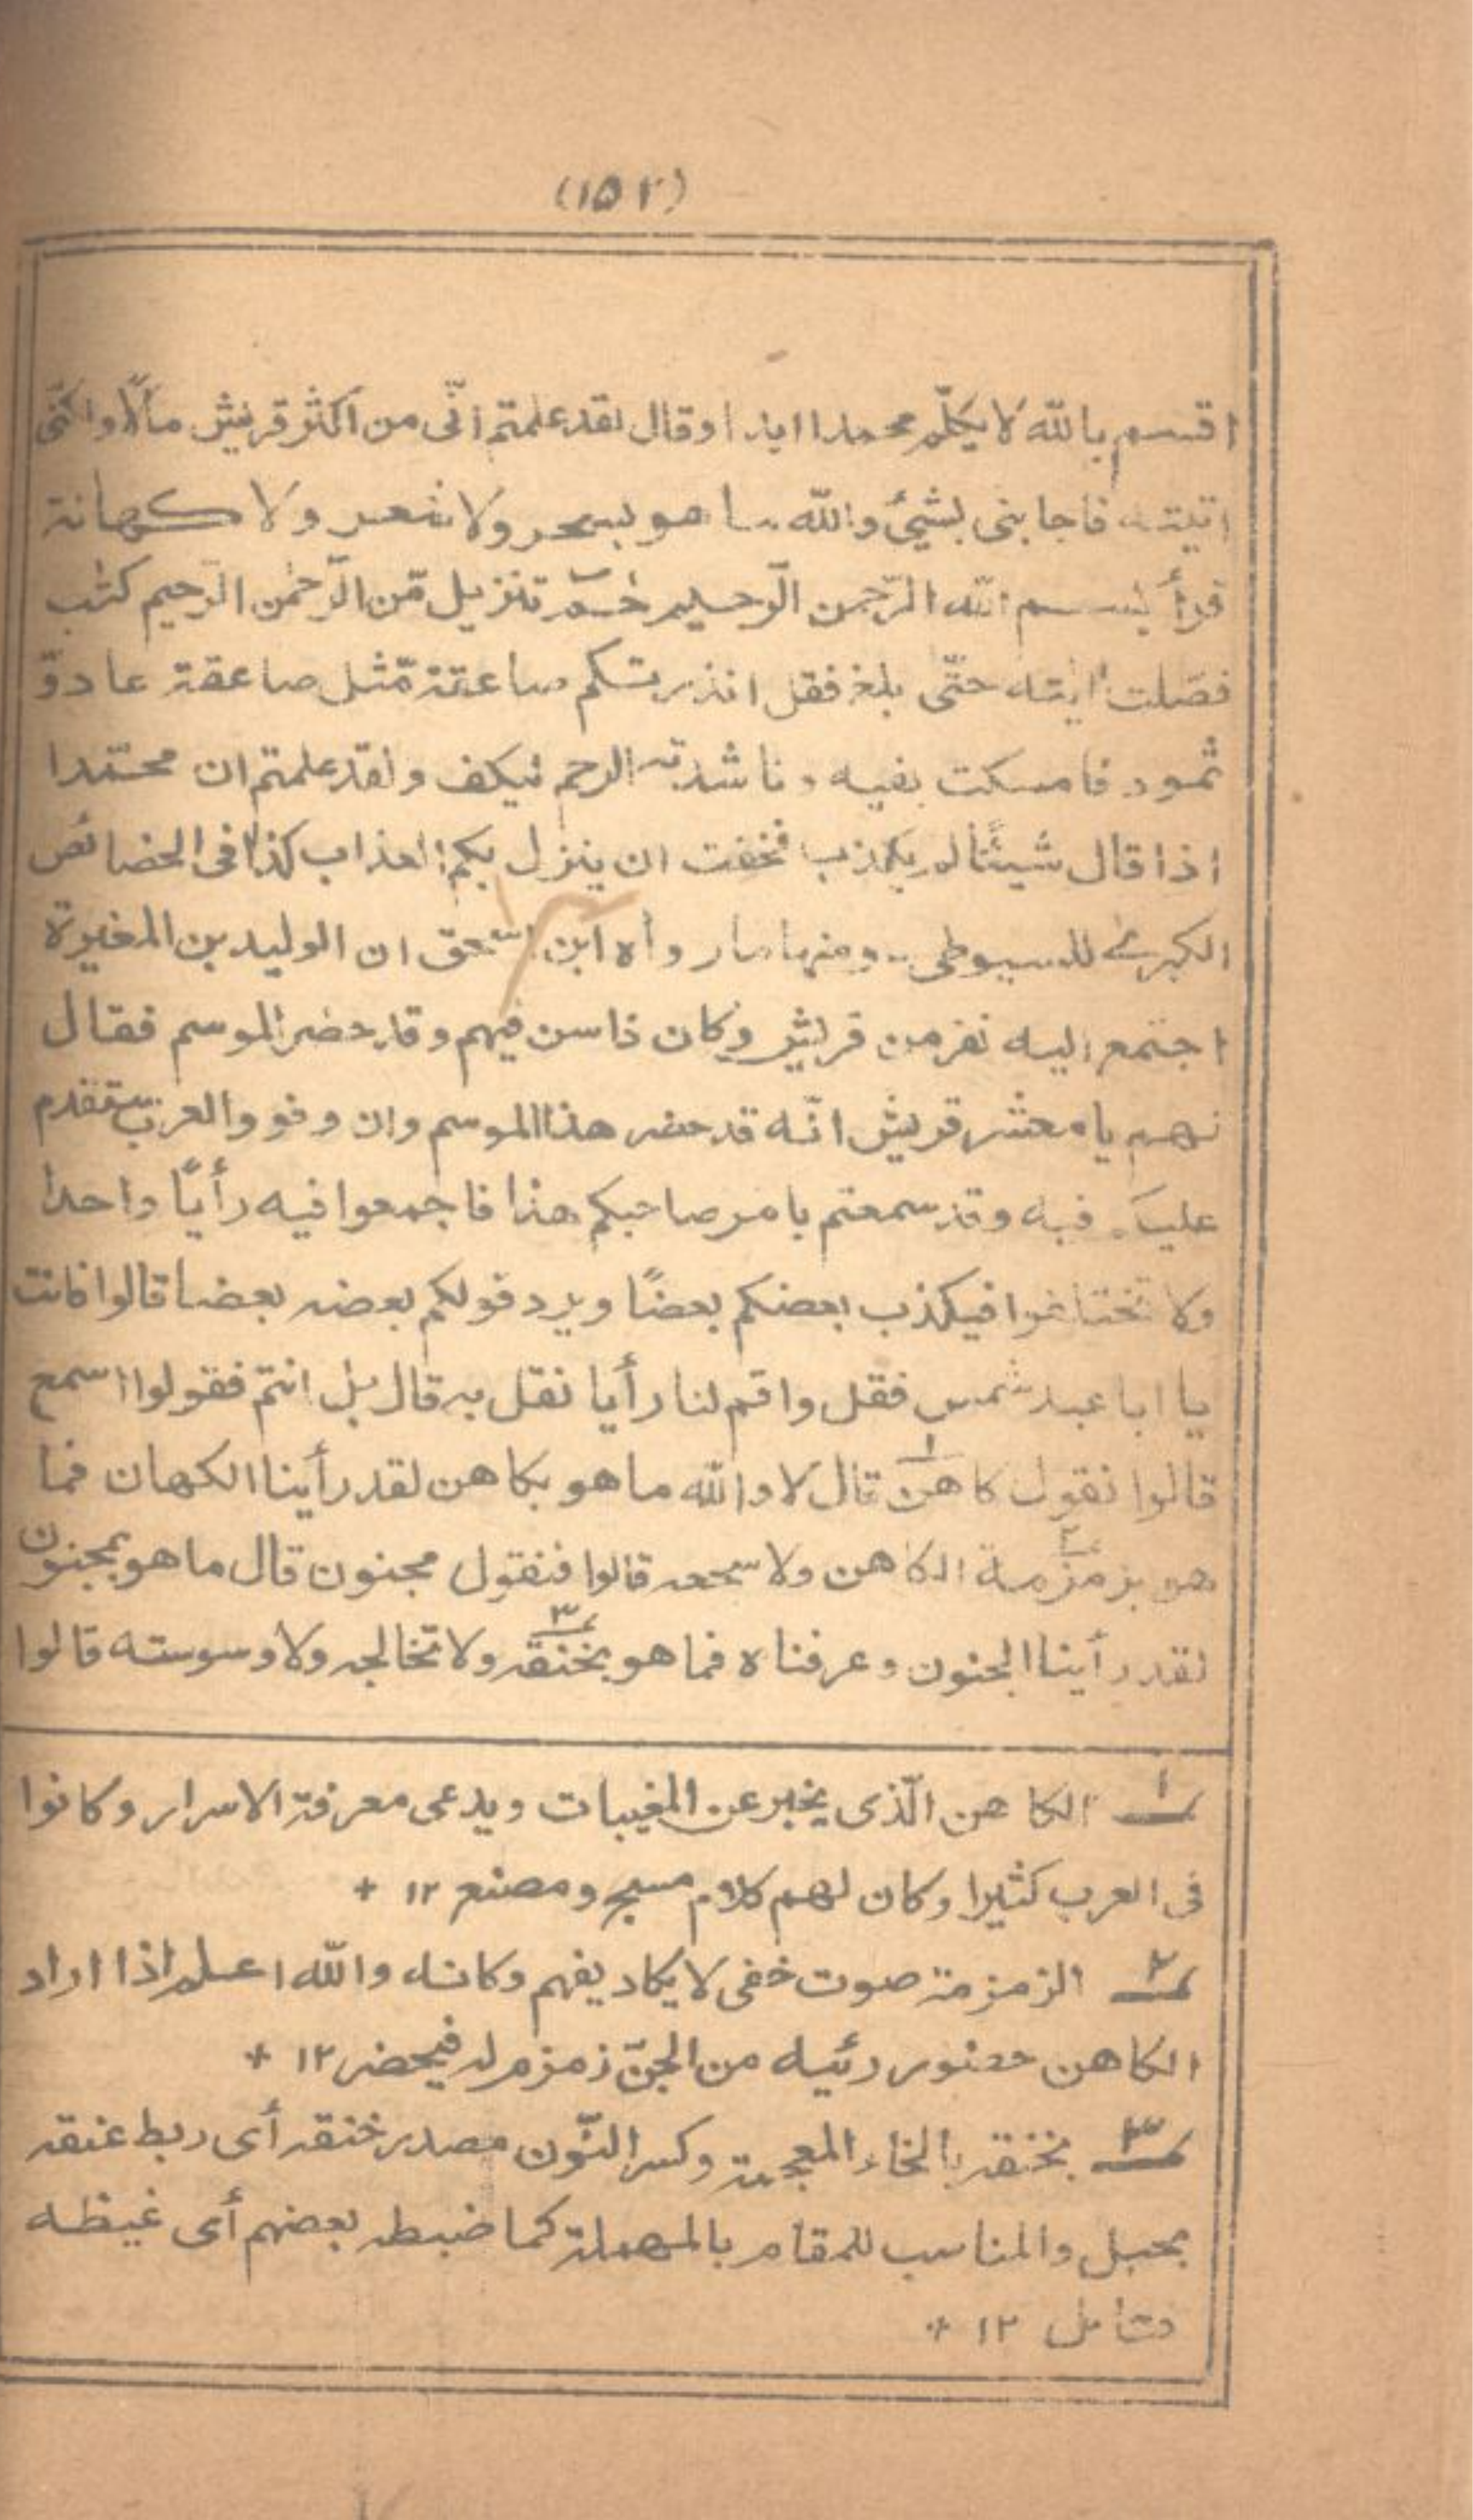 (١٥٢)
اقسم بالله لا يكلّم محمدا ابدا وقال لقد علمتم انّى من اكثر قريش مالًا ولكنّى
اتيته فاجابنى بشيئ والله ما هو بسحر ولا شعر ولا كهانة
قرأ بسم الله الرّحمن الرّحيم حٰمٓ تنزيل مّن الرّحمٰن الرّحيم كتٰب
فصّلت اٰيٰته حتّى بلغ فقل انذرتكم صاعقة مّثل صاعقة عاد وّ
ثمود فامسكت بفيه وناشدته الرحم ليكف ولقد علمتم ان محمّدا
اذا قال شيئًا لم يكذب فخفت ان ينزل بكم العذاب كذا فى الخصائص
الكبرىٰ للسيوطى ـ ومنها ما رواه ابن اسحٰق ان الوليد بن المغيرة
اجتمع اليه نفر من قريش وكان ذا سن فيهم وقد حضر الموسم فقال
لهم يا معشر قريش انّه قد حضر هذا الموسم وان وفود العرب ستقدم
عليكم فيه وقد سمعتم بامر صاحبكم هذا فاجمعوا فيه رأيًا واحدا
ولا تختلفوا فيكذب بعضكم بعضًا ويرد قولكم بعضه بعضا قالوا فانت
يا ابا عبد شمس فقل واقم لنا رأيا نقل به قال بل انتم فقولوا اسمع
قالوا نقول كاهن١ قال لا والله ما هو بكاهن لقد رأينا الكهان فما
هو بزمزمة٢ الكاهن ولا سجعه قالوا فنقول مجنون قال ما هو بمجنون
لقد رأينا الجنون وعرفناه فما هو بخنقه٣ ولا تخالجه ولا وسوسته قالوا
١ الكاهن الّذى يخبر عن المغيبات ويدعى معرفة الاسرار وكانوا
فى العرب كثيرا وكان لهم كلام مسجع ومصنع ١٢ +
٢ الزمزمة صوت خفى لا يكاد يفهم وكانه والله اعلم اذا اراد
الكاهن حضور رئيه من الجنّ زمزم له فيحضر ١٢ +
٣ بخنقه بالخاء المعجمة وكسر النّون مصدر خنقه أى ربط عنقه
بحبل والمناسب للمقام بالمهملة كما ضبطه بعضهم أى غيظه
فتامل ١٢ +